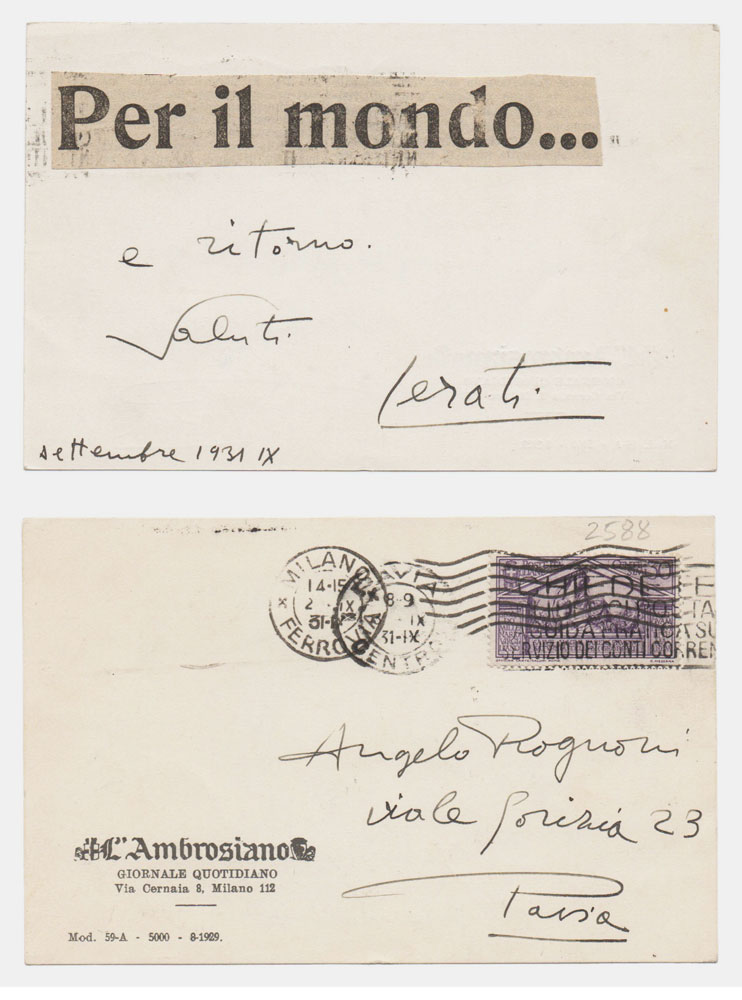 Per il mondo...
e ritorno.
Saluti.
Cerati.
settembre 1931 IX
2588
MILANO
14-15
2 IX
31-IX
FERROVIA
PAVIA
8-9
IX
31-IX
CENTRO
CHIEDETE
GUIDA PRATICA SU
SERVIZIO DEI CONTI CORREN
Angelo Rognoni
viale Gorizia 23
Pavia
L'Ambrosiano
GIORNALE QUOTIDIANO
Via Cernaia 8, Milano 112
Mod. 59-A - 5000 - 8-1929.